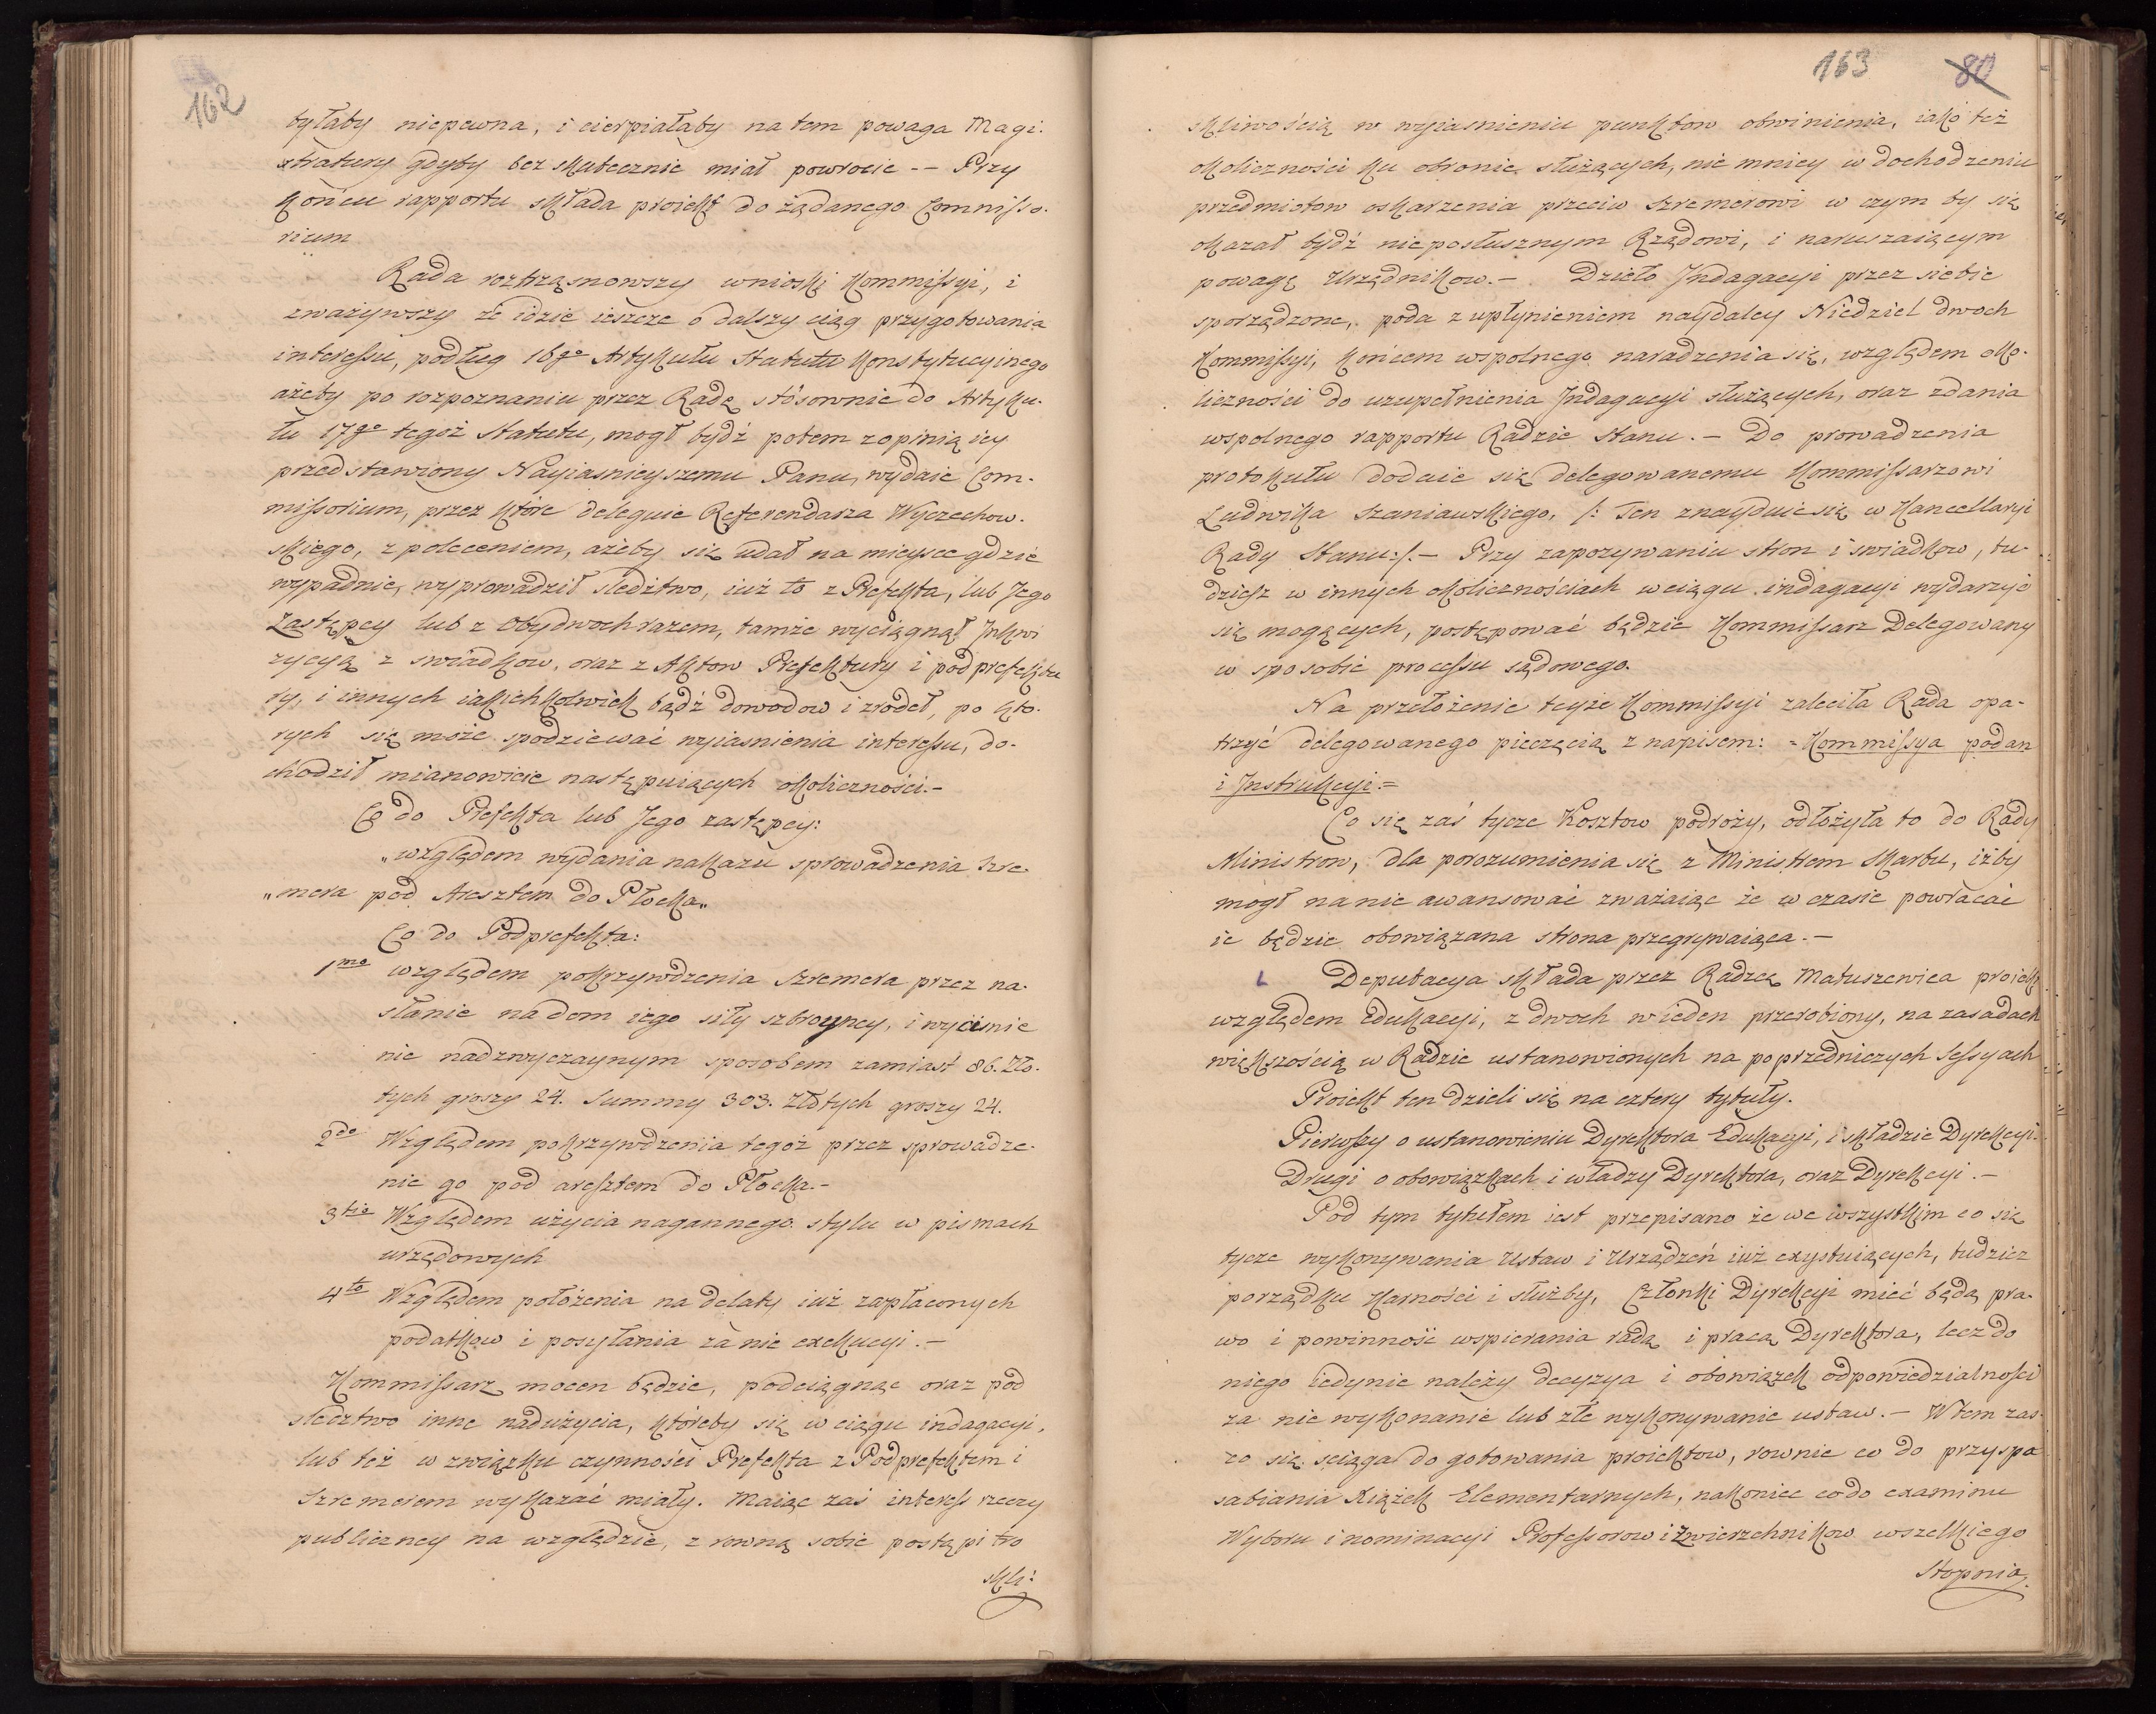 162
byłaby niepewna, i cierpiałaby na tem powaga Magi.
stratury gdyby bezskutecznie miał powrocić -- Przy
końcu rapportu składa proiekt do żądanego Commisso.
rium
Rada roztrząsnowszy wnioski Kommissyi, i
zważywszy że idzie ieszcze o dalszy ciąg przygotowania
interessu, podług 16go Artykułu Statutu Konstytucyinego
ażeby po rozpoznaniu przez Radę stósownie do Artyku.
łu 17go tegoż Statutu, mogł bydź potem z opinią iey
przedstawiony Nayiasnieyszemu Panu, wydaie Com.
missorium, przez które deleguie Referendarza Wyczechow.
skiego, z poleceniem, ażeby się udał na mieysce gdzie
wypadnie, wyprowadził sledztwo, iuż to z Prefekta, lub Jego
Zastępcy lub z Obydwoch razem, tamże wyciągnął Inkwi
zycyą z swiadkow, oraz z Aktow Prefektury i podprefektu
ry, i innych iakichkolwiek bądź dowodow i zrodeł, po kto.
rych się może spodziewać wyiasnienia interessu, do.
chodził mianowicie następuiących okoliczności.-
Co do Prefekta lub Jego zastępcy:
„względem wydania nakazu sprowadzenia Szre.
„mera pod Aresztem do Płocka„
Co do Podprefekta:
1mo względem pokrzywdzenia Szremera przez na.
słanie na dom iego siły szbroyney, i wyciśnie
nie nadzwyczaynym sposobem zamiast 86. Zło.
tych groszy 24. Summy 303. Złotych groszy 24.
2do Względem pokrzywdzenia tegoż przez sprowadze.
nie go pod aresztem do Płocka.-
3tio Względem użycia nagannego stylu w pismach
urzędowych
4to Względem położenia na delaty iuż zapłaconych
podatkow i posyłania za nie exekucyi.-
Kommissarz mocen będzie, podciągnąć oraz pod
sledztwo inne nadużycia, któreby się w ciągu indagacyi,
lub też w związku czynności Prefekta z Podprefektem i
Szremerem wykazać miały. Maiąc zaś interess rzeczy
publiczney na względzie, z rowną sobie postąpi tro
skli:
163 80
skliwością w wyiasnieniu punktow obwinienia, iako też
okoliczności ku obronie służących, nie mniey w dochodzeniu
przedmiotow oskarzenia przeciw Szremerowi w czym by się
okazał bydź nieposłusznym Rządowi, i naruszaiącym
powagę Urzędnikow.- Dzieło Indagacyi przez siebie
sporządzone, poda z upłynieniem naydaley Niedziel dwoch
Kommissyi, końcem wspolnego naradzenia się, względem oko.
liczności do uzupełnienia Indagacyi służących, oraz zdania
wspolnego rapportu Radzie Stanu.- Do prowadzenia
protokułu dodaie się delegowanemu Kommissarzowi
Ludwika Szaniawskiego, /: Ten znayduie się w Kancellaryi
Rady Stanu:/.- Przy zapozywaniu stron i swiadkow, tu.
dziesz w innych okolicznościach w ciągu indagacyi wydarzyć
się mogących, postępować będzie Kommissarz Delegowany
w sposobie processu sądowego.
Na przełożenie teyże Kommissyi zaleciła Rada opa-
trzyć delegowanego pieczęcią z napisem: =Kommissya podan
i Instrukcyi.=
Co się zaś tycze Kosztow podroży, odłożyła to do Rady
Ministrow, dla porozumienia się z Ministrem Skarbu, iżby
mogł na nie awansować zważaiąc że w czasie powracać
ie będzie obowiązana strona przegrywaiąca.-
Deputacya składa przez Radzcę Matuszewica proiekt
względem Edukacyi, z dwoch w ieden przerobiony, na zasadach
większością w Radzie ustanowionych na poprzedniczych Sessyach
Proiekt ten dzieli się na cztery tytuły.
Pierwszy o ustanowieniu Dyrektora Edukacyi, i składzie Dyrekcyi.
Drugi o obowiązkach i władzy Dyrektora, oraz Dyrekcyi.-
Pod tym tytułem iest przepisano że we wszystkim co się
tycze wykonywania Ustaw i Urządzeń iuż exystuiących, tudziez
porządku Karności i służby, Członki Dyrekcyi mieć będą pra.
wo i powinność wspierania radą i pracą Dyrektora, lecz do
niego iedynie należy decyzya i obowiązek odpowiedzialności
za nie wykonanie lub złe wykonywanie ustaw.- W tem zas
co się sciąga do gotowania proiektow, rownie co do przyspa
sabiania Książek Elementarnych, nakoniec co do examinu
Wyboru i nominacyi Professorow i Zwierzchnikow wszelkiego
Stopnia.